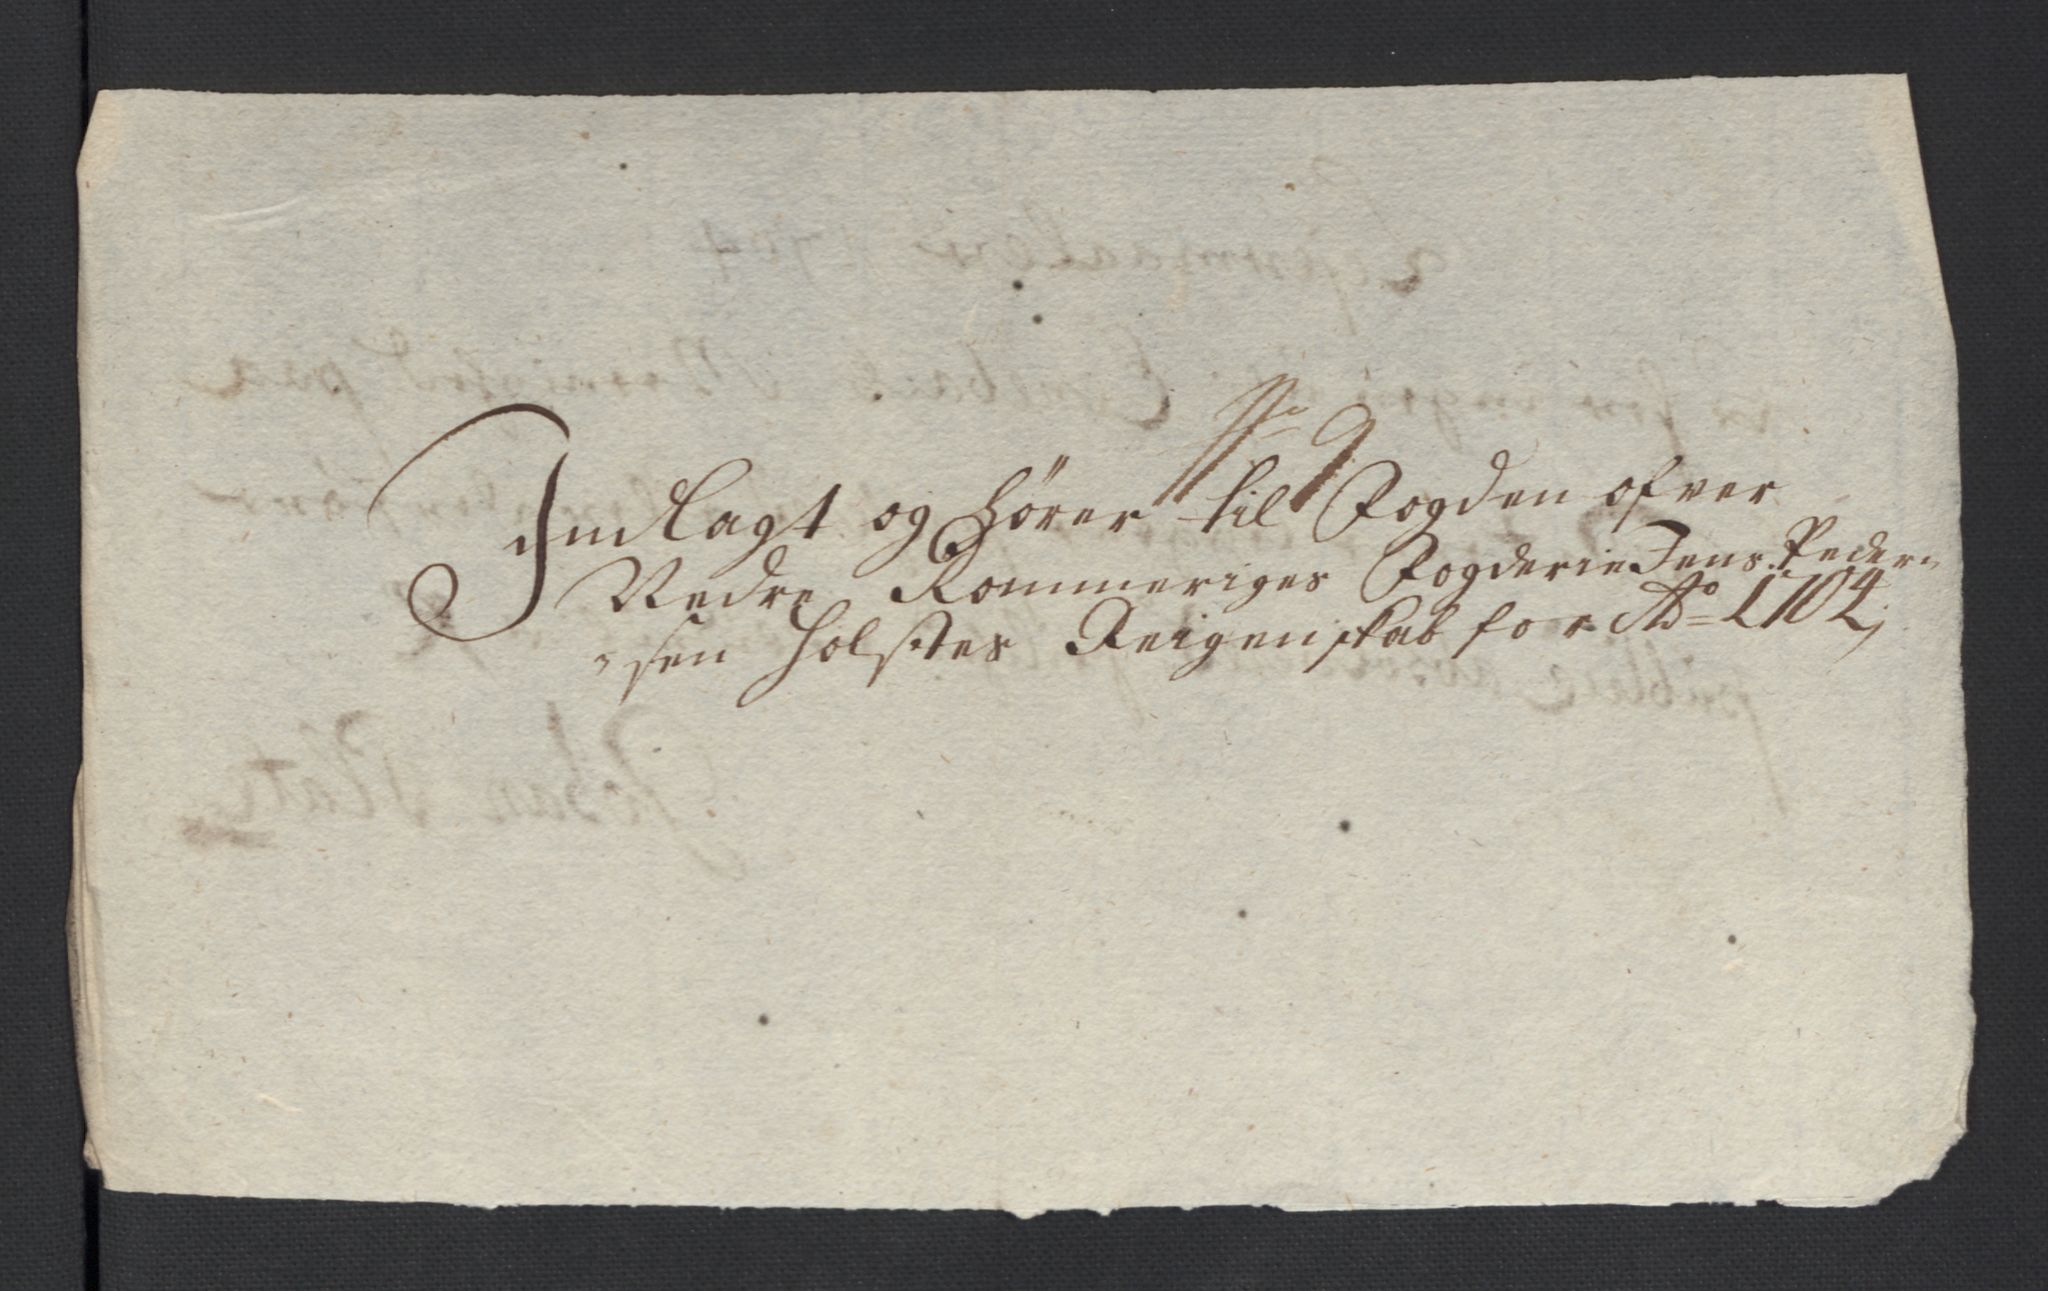 Indlagt og hører til Fogden ofver
Nedre Rommeriges Fogderie Jens Peder-
-sen Holstes Reigenskab for Ao 1704